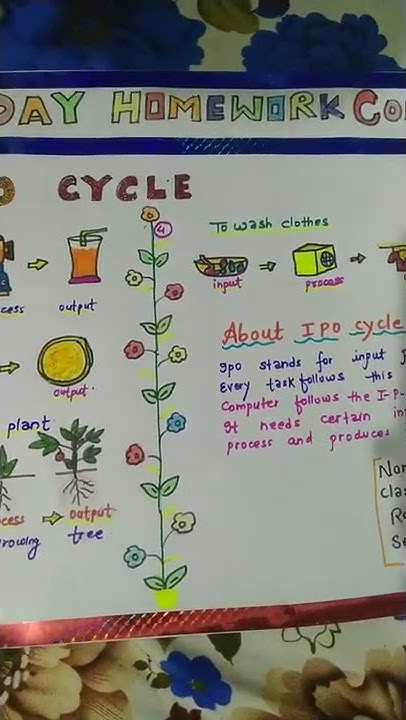 DAY HOMEWORK Co
O CYCLE
4
To wash clothes
cess
output
input
process
output
plant
cess
output
rowing
tree
About IPO cycle
Ipo stands for input
Every task follows this
Computer follows the I-P-
It needs certain in
process and produces
Nam
clas
R
Se